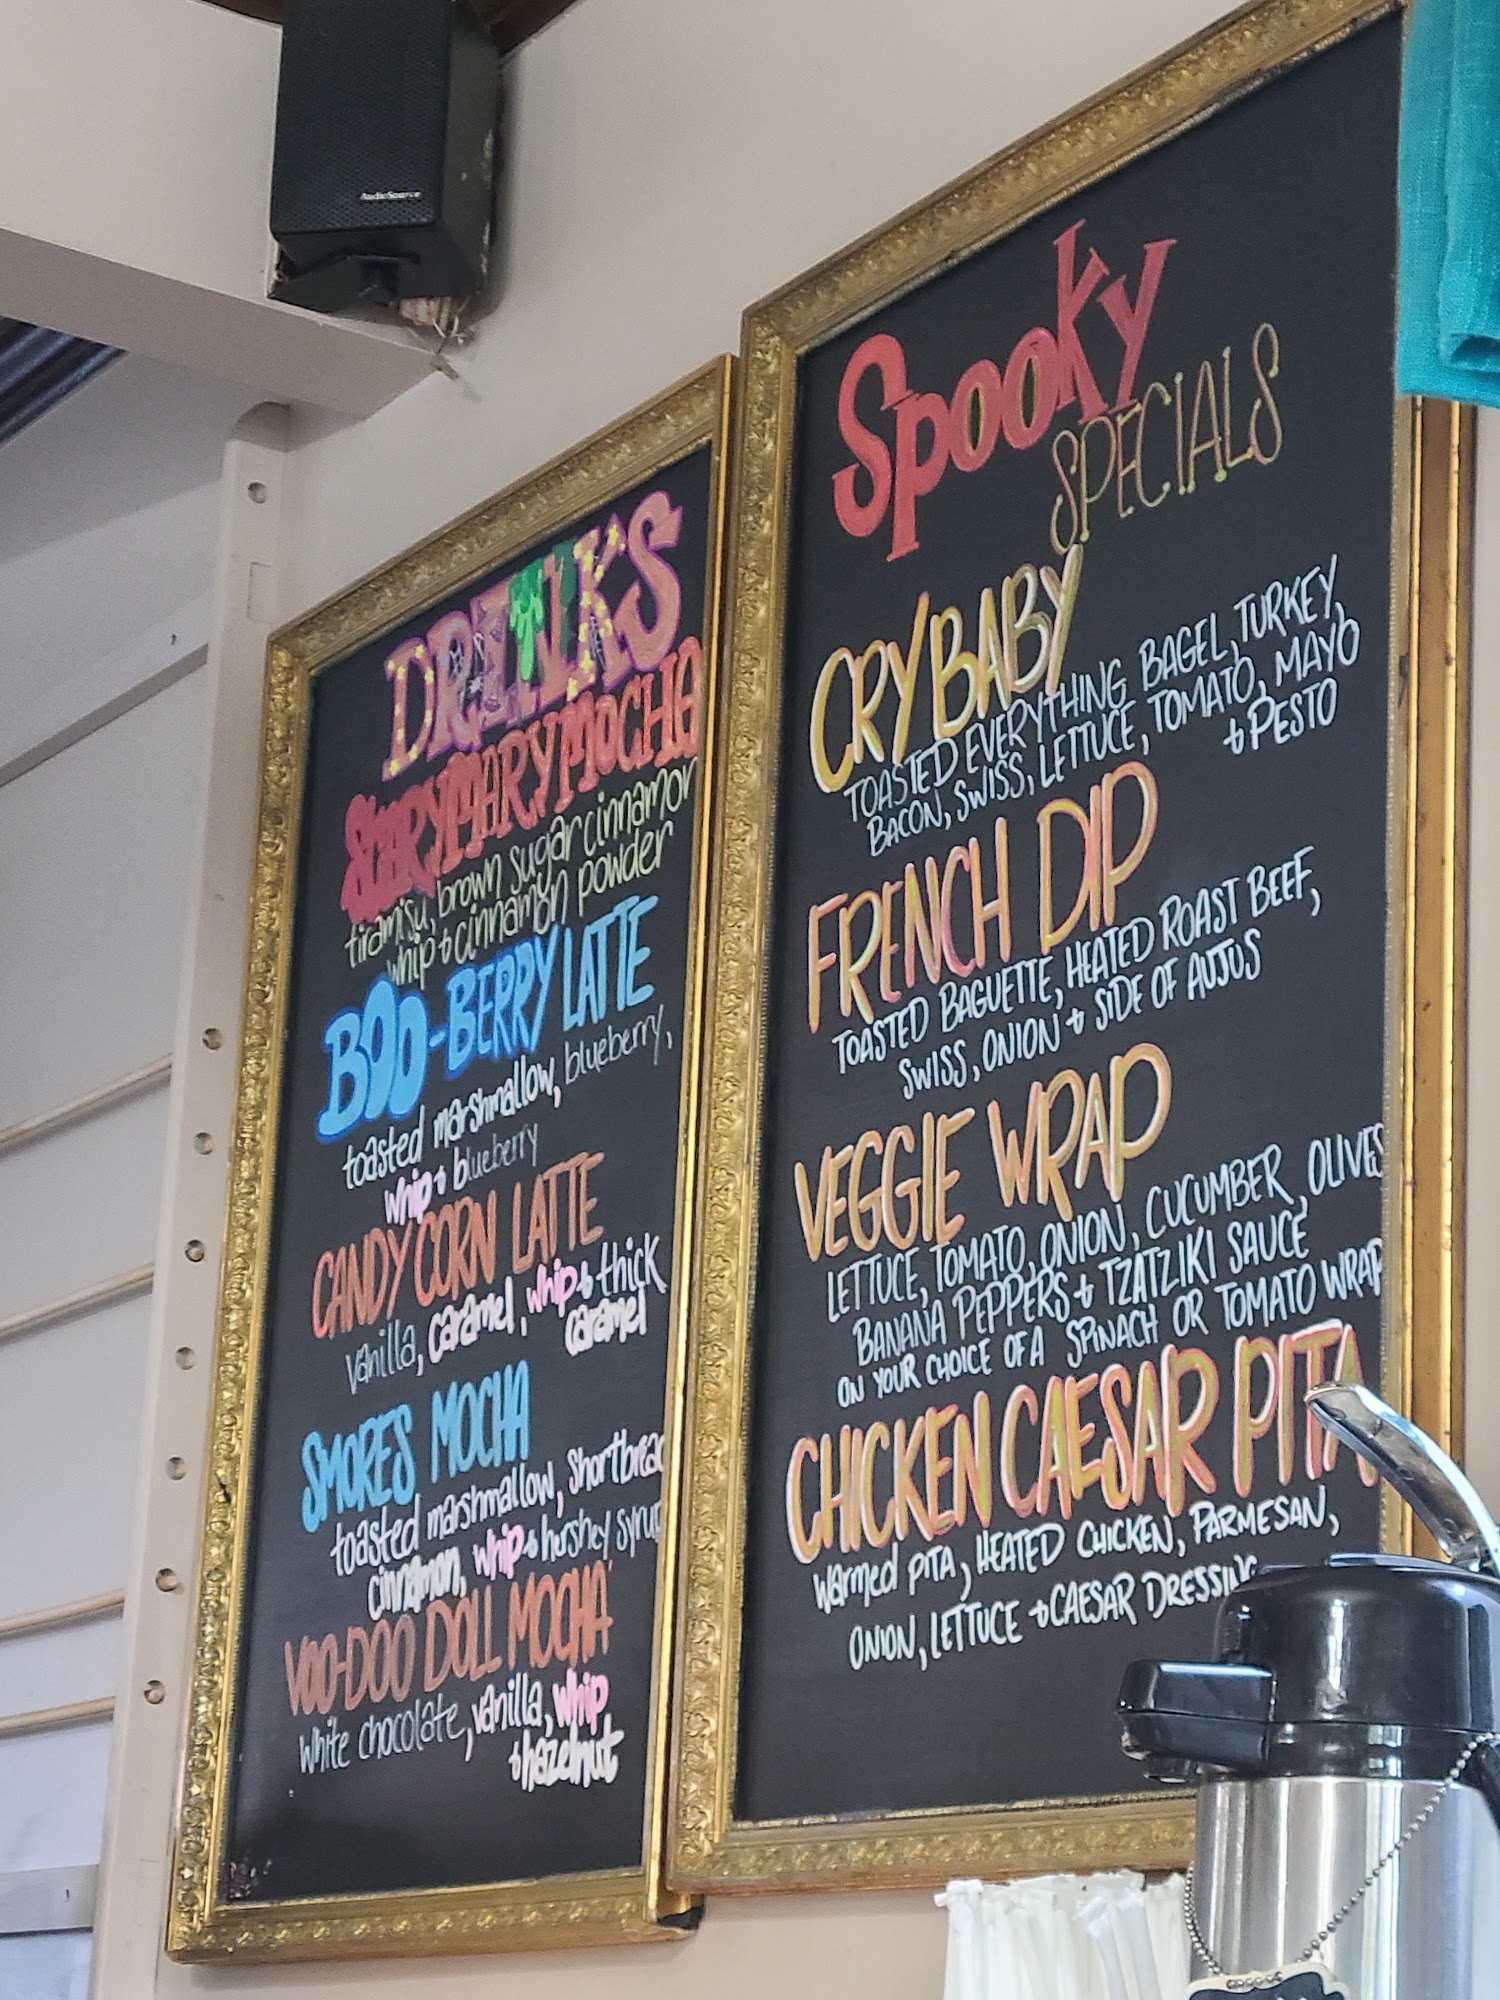 AudioSource
DRINKS
SCARY MARY MOCHA
tiramisu, brown sugar cinnamon
whip & cinnamon powder
BOO-BERRY LATTE
toasted marshmallow, blueberry,
whip & blueberry
CANDY CORN LATTE
vanilla, caramel, whip & thick
caramel
SMORES MOCHA
toasted marshmallow, shortbread
cinnamon, whip & hershey syrup
VOO-DOO DOLL MOCHA
white chocolate, vanilla, whip
& hazelnut
Spooky
SPECIALS
CRY BABY
TOASTED EVERYTHING BAGEL, TURKEY,
BACON, SWISS, LETTUCE, TOMATO, MAYO
& PESTO
FRENCH DIP
TOASTED BAGUETTE, HEATED ROAST BEEF,
SWISS, ONION & SIDE OF AUJUS
VEGGIE WRAP
LETTUCE, TOMATO, ONION, CUCUMBER, OLIVES
BANANA PEPPERS & TZATZIKI SAUCE
ON YOUR CHOICE OF A SPINACH OR TOMATO WRAP
CHICKEN CAESAR PITA
Warmed PITA, HEATED CHICKEN, PARMESAN,
ONION, LETTUCE & CAESAR DRESSING